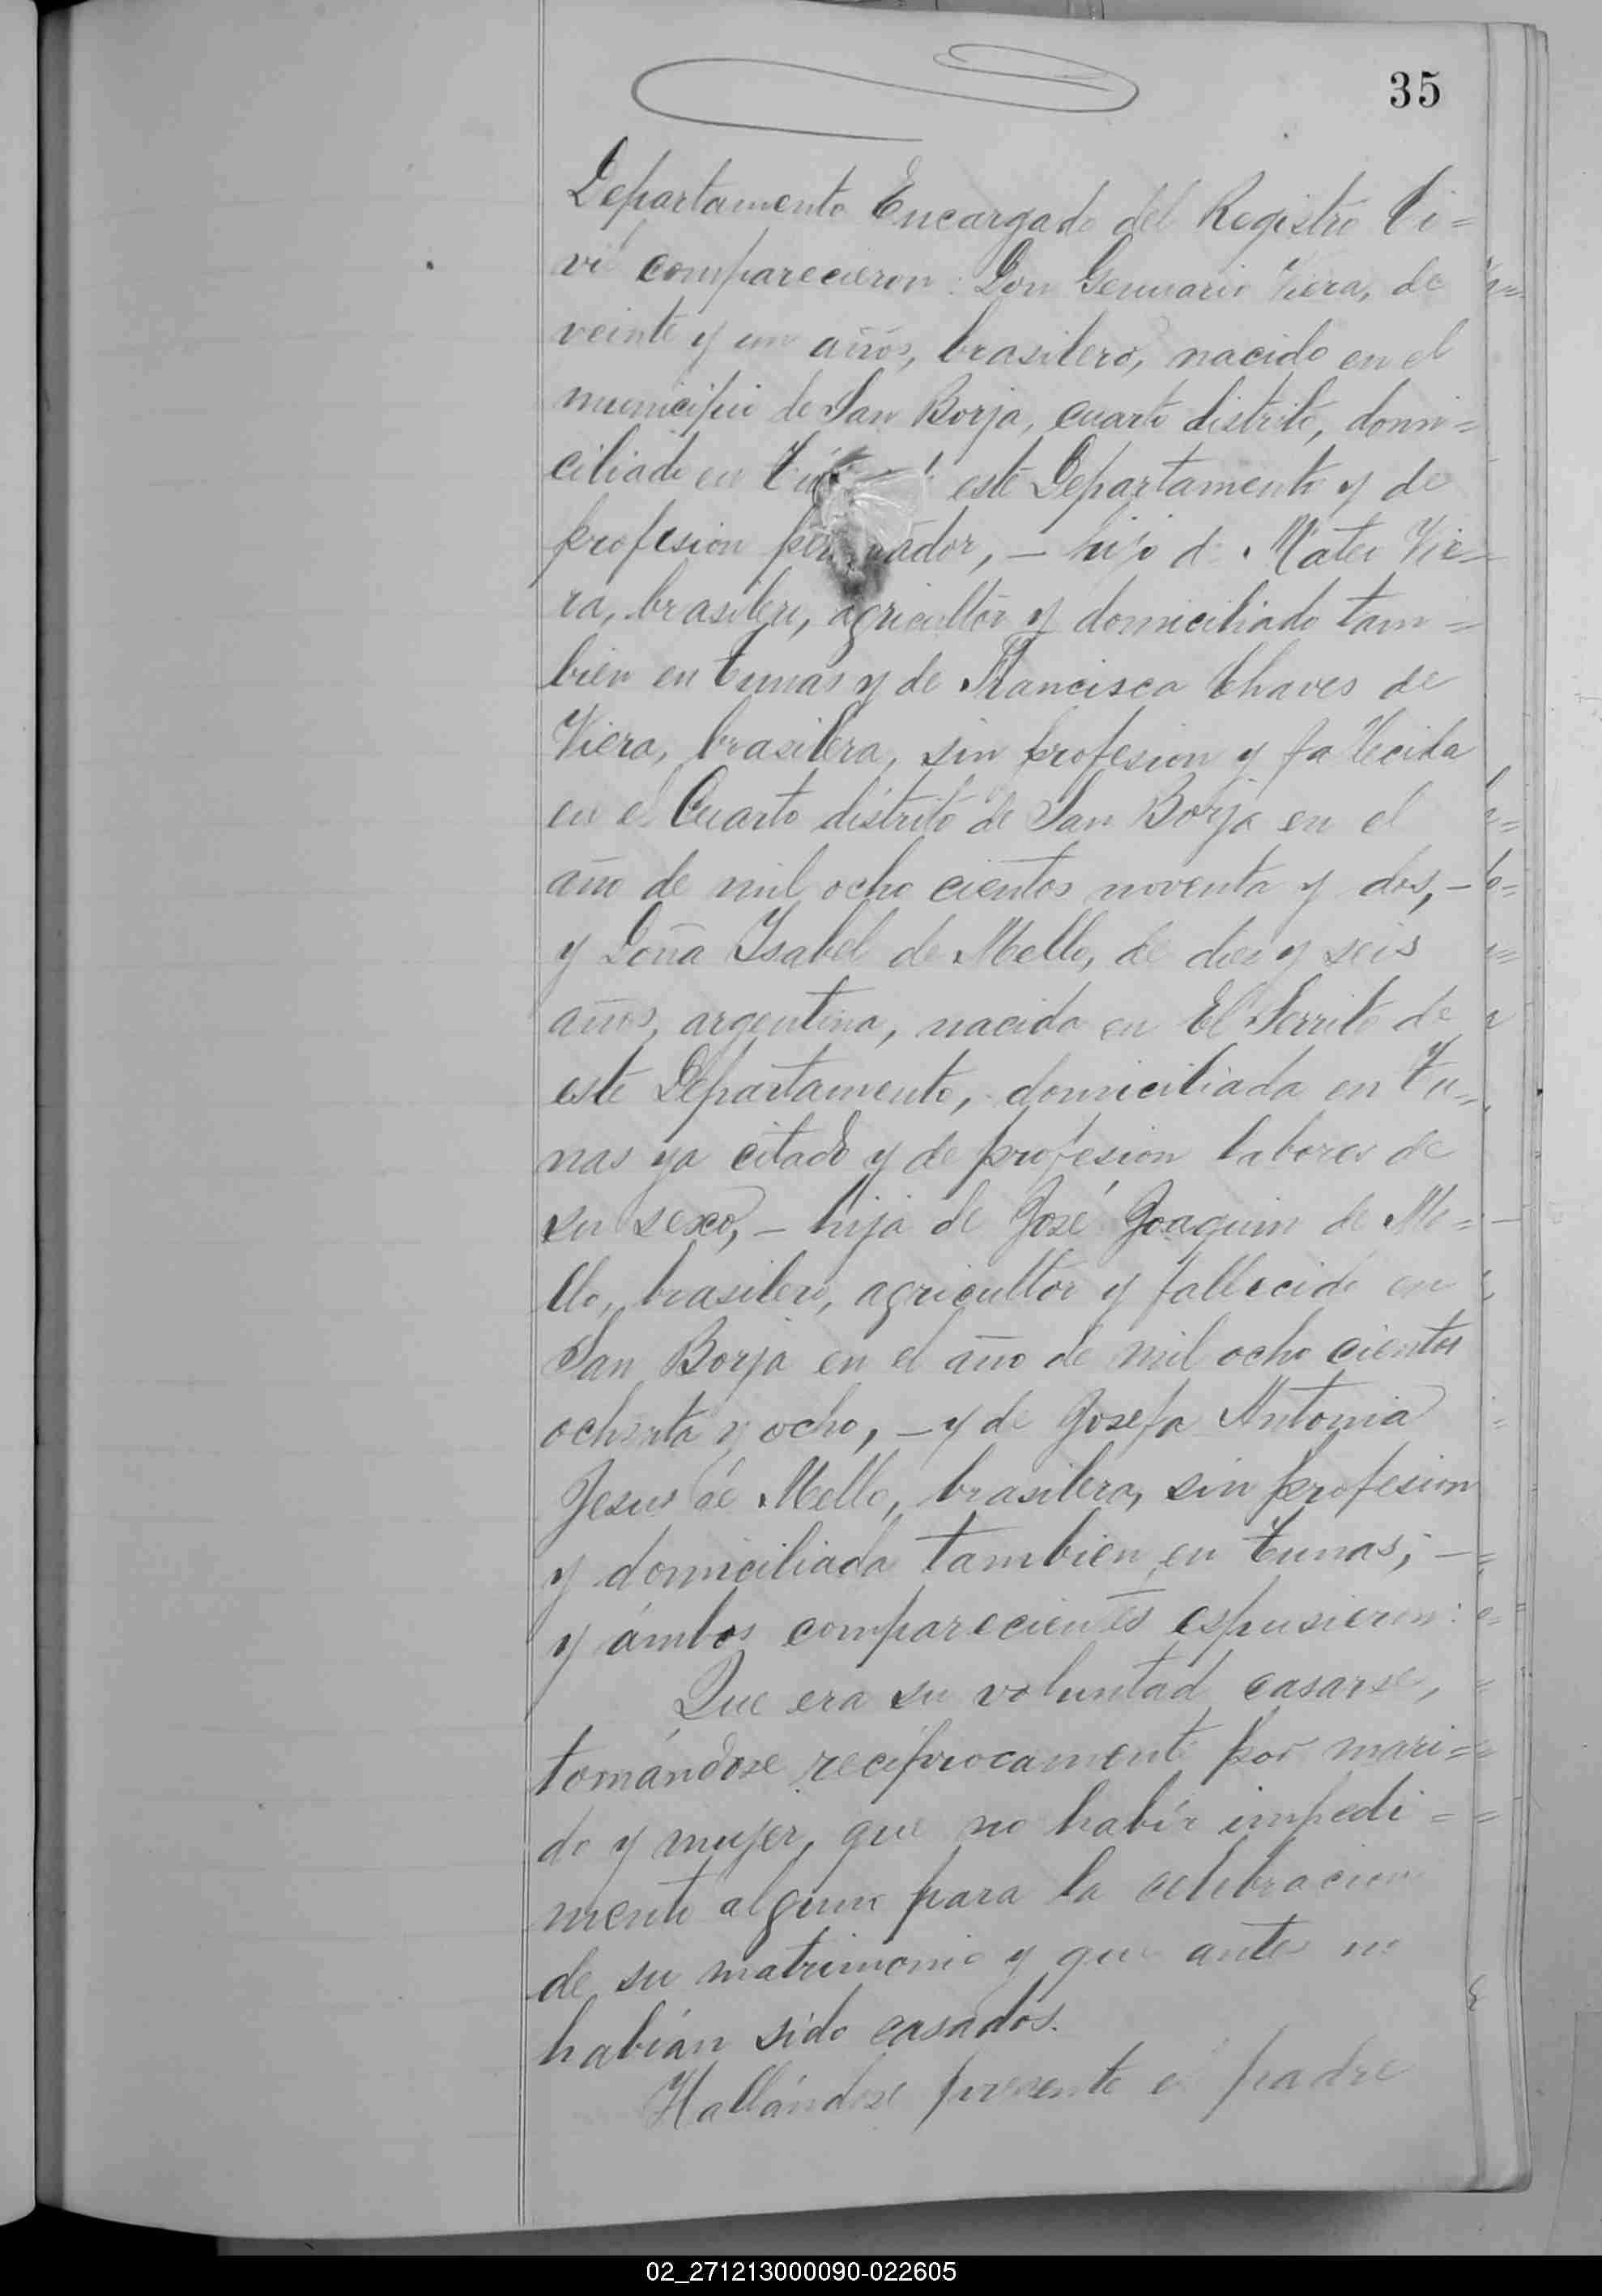 35
Departamento Encargado del Registro Ci=
vil comparecieron: Don Genuario Viera, de
veinte y un años, brasilero, nacido en el
municipio de San Borja, cuarto distrito, domi=
ciliado en este Departamento y de
profesion — hijo de Mateo Vie=
ra, brasilero, agricultor y domiciliado tam=
bien en Tunas y de Francisca Chaves de
Viera, brasilera, sin profesion y fallecida
en el Cuarto distrito de San Borja en el
año de mil ocho cientos noventa y dos, —
y Doña Isabel de Mello, de diez y seis
años, argentina, nacida en El Serrito de
este Departamento, domiciliada en Tu=
nas ya citado y de profesion labores de
su sexo, — hija de José Joaquim de Me=
llo, brasilero, agricultor y fallecido en
San Borja en el año de mil ocho cientos
ochenta y ocho, — y de Josefa Antonia
Jesus de Mello, brasilera, sin profesion
y domiciliada tambien en Tunas; —
y ámbos comparecientes espusieron:
Que era su voluntad casarse,
tomándose recíprocamente por mari=
do y mujer, que no había impedi=
mento alguno para la celebracion
de su matrimonio y que antes no
habían sido casados.
Hallándose presente el padre
02_271213000090-022605